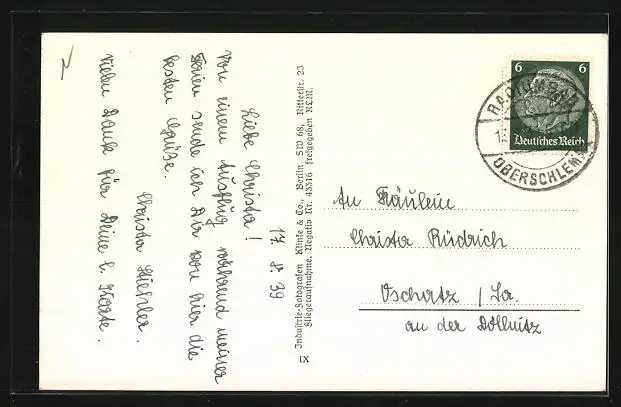 17. 8. 39
Liebe Christa!
Von einem Ausflug während meiner
Ferien sende ich Dir von hier die
besten Grüße.
Christa
Vielen Dank für Deine l. Karte.
Industrie-Fotografen Klinke & Co., Berlin SW 68, Ritterstr. 23
Fliegeraufnahme. Negativ Nr. 43516 freigegeben RLM.
IX
6 6
Deutsches Reich
RADIUMBAD
OBERSCHLEMA
An Fräulein
Christa Rüdrich
Oschatz / Sa.
an der Döllnitz